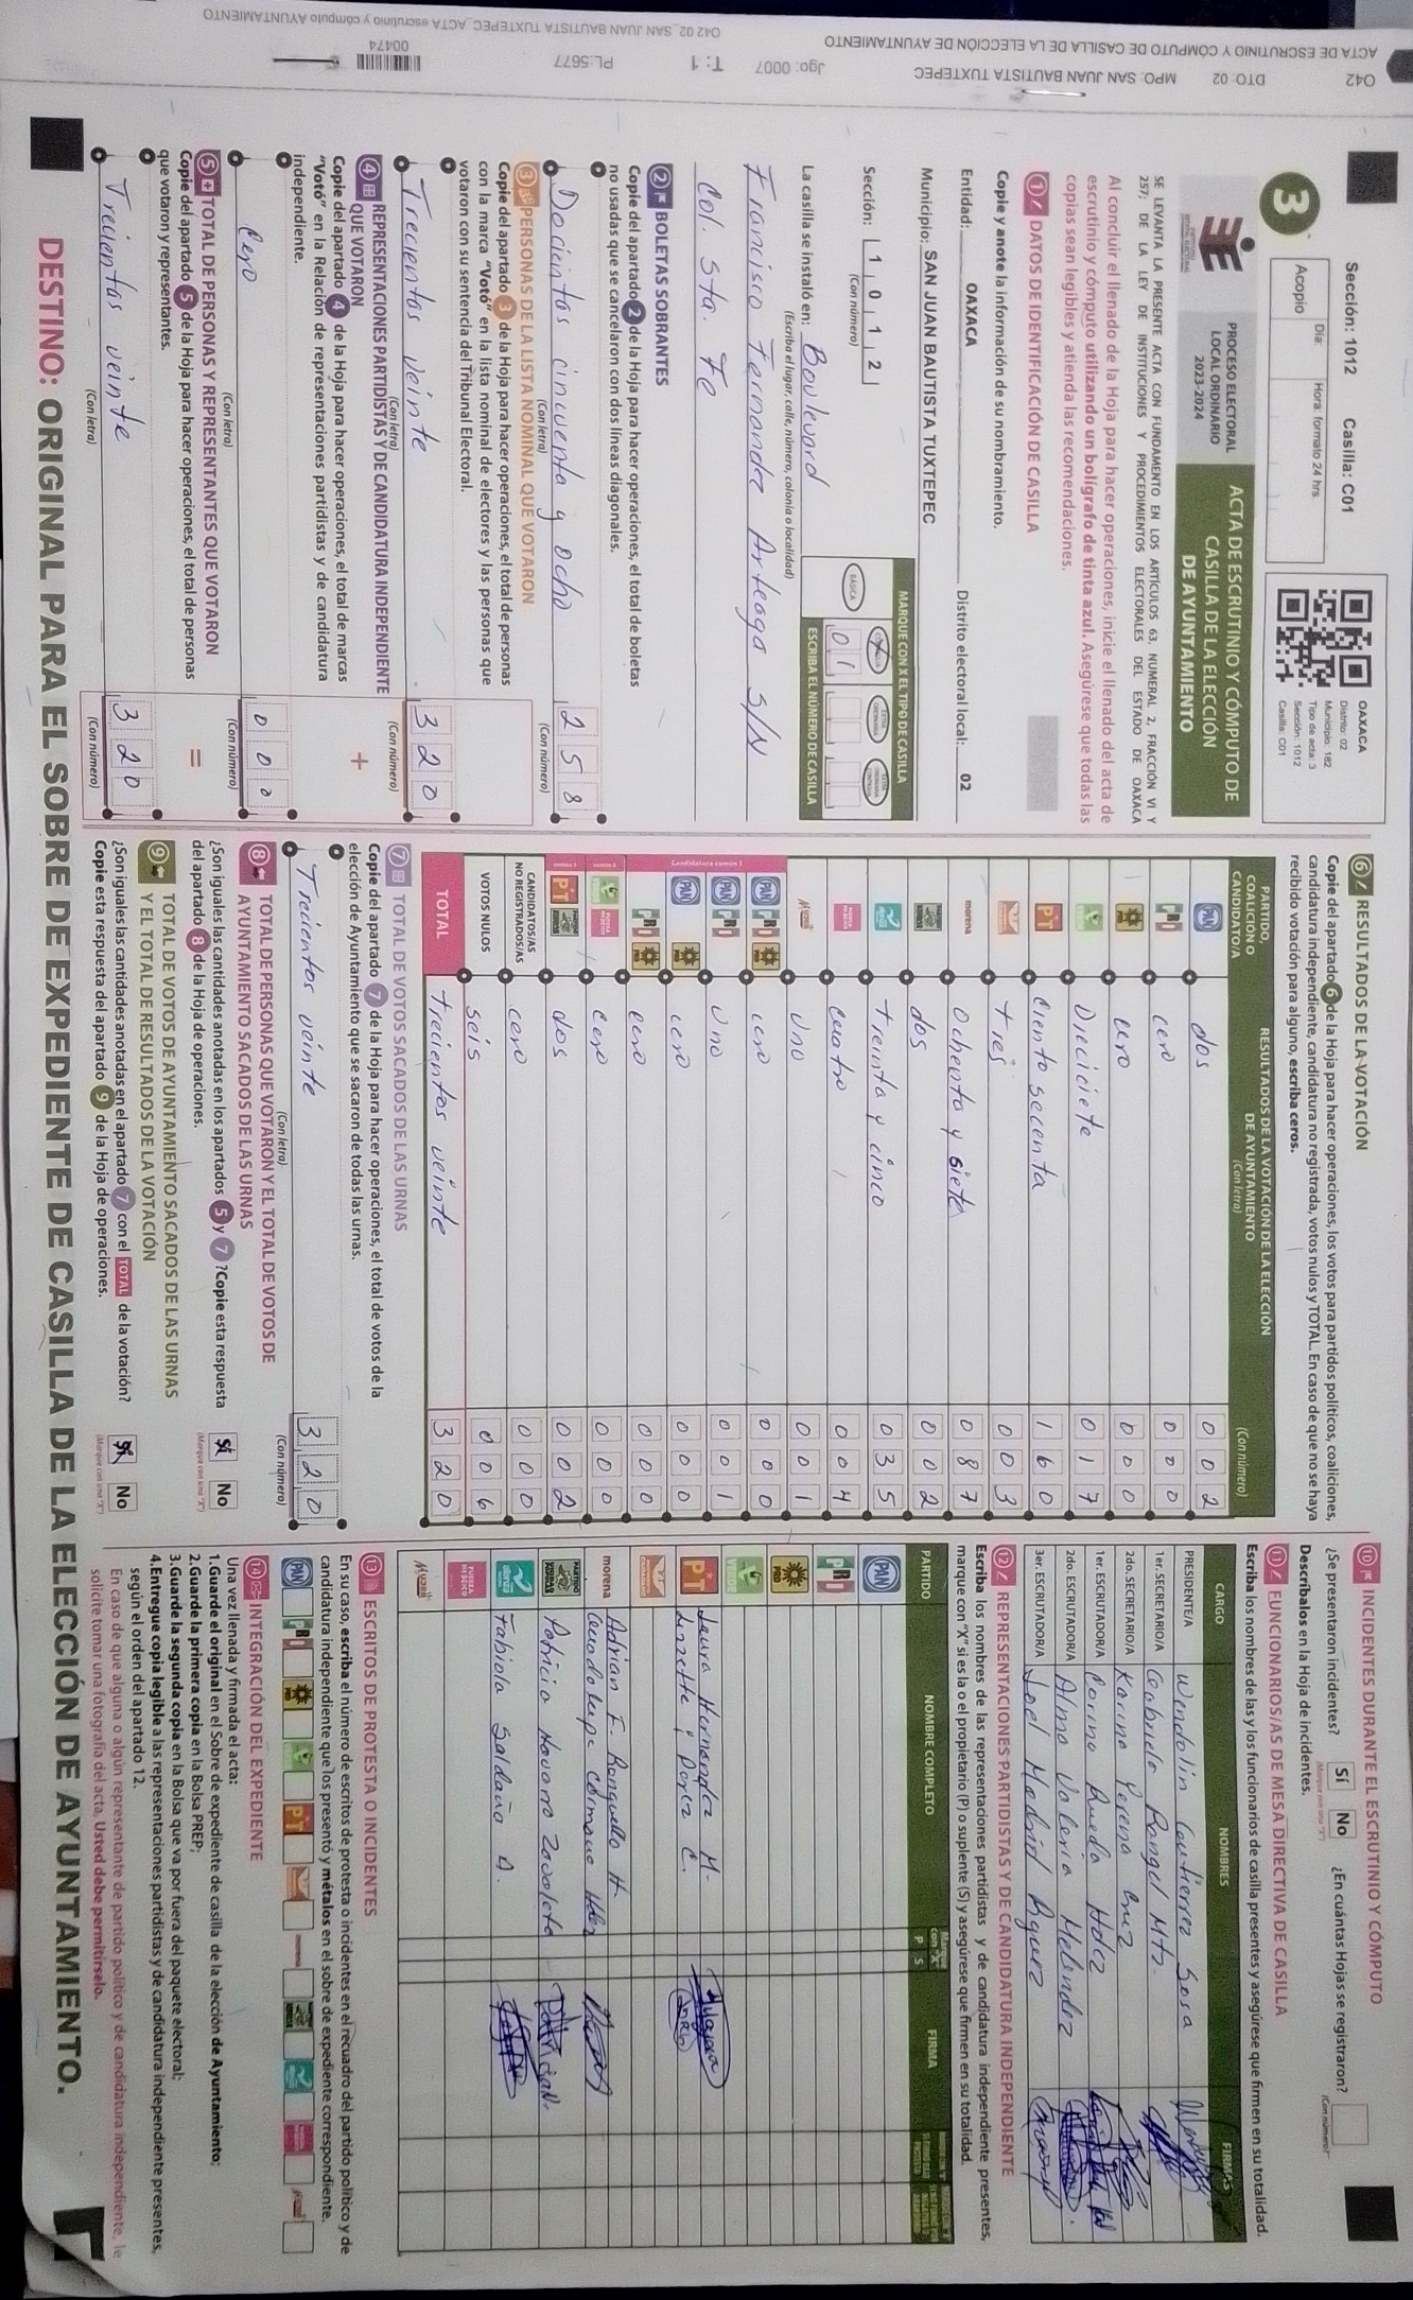 042 DTO: 02 MPO: SAN JUAN BAUTISTA TUXTEPEC Jgo: 0007 T: 1 PL:5677 00474
ACTA DE ESCRUTINIO Y CÓMPUTO DE CASILLA DE LA ELECCIÓN DE AYUNTAMIENTO 042 02_SAN JUAN BAUTISTA TUXTEPEC_ACTA escrutinio y cómputo AYUNTAMIENTO
Sección: 1012 Casilla: C01
3
Acopio
Día:
Hora: formato 24 hrs.
OAXACA
Distrito: 02
Municipio: 182
Tipo de acta: 3
Sección: 1012
Casilla: C01
PROCESO ELECTORAL
LOCAL ORDINARIO
2023-2024
ACTA DE ESCRUTINIO Y CÓMPUTO DE
CASILLA DE LA ELECCIÓN
DE AYUNTAMIENTO
SE LEVANTA LA PRESENTE ACTA CON FUNDAMENTO EN LOS ARTÍCULOS 63, NUMERAL 2, FRACCIÓN VI Y
257; DE LA LEY DE INSTITUCIONES Y PROCEDIMIENTOS ELECTORALES DEL ESTADO DE OAXACA
Al concluir el llenado de la Hoja para hacer operaciones, inicie el llenado del acta de
escrutinio y cómputo utilizando un bolígrafo de tinta azul. Asegúrese que todas las
copias sean legibles y atienda las recomendaciones.
1 DATOS DE IDENTIFICACIÓN DE CASILLA
Copie y anote la información de su nombramiento.
Entidad: OAXACA Distrito electoral local: 02
Municipio: SAN JUAN BAUTISTA TUXTEPEC
Sección: 1 0 1 2
(Con número)
MARQUE CON X EL TIPO DE CASILLA
BÁSICA
0 1
ESCRIBA EL NÚMERO DE CASILLA
La casilla se instaló en: Boulevard
(Escriba el lugar, calle, número, colonia o localidad)
Francisco Fernandez Arteaga S/N
Col. Sta. Fe
2 BOLETAS SOBRANTES
Copie del apartado 2 de la Hoja para hacer operaciones, el total de boletas
no usadas que se cancelaron con dos líneas diagonales.
Docientos cincuenta y ocho 2 5 8
(Con letra) (Con número)
3 PERSONAS DE LA LISTA NOMINAL QUE VOTARON
Copie del apartado 3 de la Hoja para hacer operaciones, el total de personas
con la marca "Votó" en la lista nominal de electores y las personas que
votaron con su sentencia del Tribunal Electoral.
Trecientos veinte 3 2 0
(Con letra) (Con número)
4 REPRESENTACIONES PARTIDISTAS Y DE CANDIDATURA INDEPENDIENTE
QUE VOTARON +
Copie del apartado 4 de la Hoja para hacer operaciones, el total de marcas
"Votó" en la Relación de representaciones partidistas y de candidatura
independiente.
Cero 0 0 0
(Con letra) (Con número)
5 TOTAL DE PERSONAS Y REPRESENTANTES QUE VOTARON =
Copie del apartado 5 de la Hoja para hacer operaciones, el total de personas
que votaron y representantes.
Trecientos veinte 3 2 0
(Con letra) (Con número)
6 RESULTADOS DE LA VOTACIÓN
Copie del apartado 6 de la Hoja para hacer operaciones, los votos para partidos políticos, coaliciones,
candidatura independiente, candidatura no registrada, votos nulos y TOTAL. En caso de que no se haya
recibido votación para alguno, escriba ceros.
PARTIDO,
COALICIÓN O
CANDIDATO/A
RESULTADOS DE LA VOTACIÓN DE LA ELECCIÓN
DE AYUNTAMIENTO
(Con letra)
(Con número)
PAN dos 0 0 2
PRI cero 0 0 0
PRD cero 0 0 0
VERDE Dieciciete 0 1 7
PT Ciento secenta 1 6 0
tres 0 0 3
morena Ochenta y siete 0 8 7
dos 0 0 2
treinta y cinco 0 3 5
cuatro 0 0 4
Uno 0 0 1
Candidatura común 1
PAN PRI PRD cero 0 0 0
PAN PRI Uno 0 0 1
PAN PRD cero 0 0 0
PRI PRD cero 0 0 0
cero 0 0 0
PT dos 0 0 2
CANDIDATOS/AS
NO REGISTRADOS/AS cero 0 0 0
VOTOS NULOS seis 0 0 6
TOTAL trecientos veinte 3 2 0
7 TOTAL DE VOTOS SACADOS DE LAS URNAS
Copie del apartado 7 de la Hoja para hacer operaciones, el total de votos de la
elección de Ayuntamiento que se sacaron de todas las urnas.
Trecientos veinte 3 2 0
(Con letra) (Con número)
8 TOTAL DE PERSONAS QUE VOTARON Y EL TOTAL DE VOTOS DE
AYUNTAMIENTO SACADOS DE LAS URNAS
¿Son iguales las cantidades anotadas en los apartados 5 y 7 ? Copie esta respuesta
del apartado 8 de la Hoja de operaciones.
Sí No
(Marque con una "X")
9 TOTAL DE VOTOS DE AYUNTAMIENTO SACADOS DE LAS URNAS
Y EL TOTAL DE RESULTADOS DE LA VOTACIÓN
¿Son iguales las cantidades anotadas en el apartado 7 con el TOTAL de la votación?
Copie esta respuesta del apartado 9 de la Hoja de operaciones.
Sí No
(Marque con una "X")
10 INCIDENTES DURANTE EL ESCRUTINIO Y CÓMPUTO
¿Se presentaron incidentes? Sí No ¿En cuántas Hojas se registraron?
(Marque con una "X") (Con número)
Descríbalos en la Hoja de incidentes.
11 FUNCIONARIOS/AS DE MESA DIRECTIVA DE CASILLA
Escriba los nombres de las y los funcionarios de casilla presentes y asegúrese que firmen en su totalidad.
CARGO NOMBRES FIRMAS
PRESIDENTE/A Wendolin Gutierrez Sosa
1er. SECRETARIO/A Gabriela Rangel Mtz.
2do. SECRETARIO/A Karina Perena Cruz
1er. ESCRUTADOR/A Corina Rueda Hdez
2do. ESCRUTADOR/A Alma Valeria Melendez
3er. ESCRUTADOR/A Joel Madrid
12 REPRESENTACIONES PARTIDISTAS Y DE CANDIDATURA INDEPENDIENTE
Escriba los nombres de las representaciones partidistas y de candidatura independiente presentes,
marque con "X" si es la o el propietario (P) o suplente (S) y asegúrese que firmen en su totalidad.
PARTIDO NOMBRE COMPLETO P S FIRMA
PAN
PRI
PRD
VERDE
PT Laura Hernandez M.
Linzette
morena Adrian
Guadalupe
Patricia Navarro Zavaleta
Fabiola Saldaña A.
13 ESCRITOS DE PROTESTA O INCIDENTES
En su caso, escriba el número de escritos de protesta o incidentes en el recuadro del partido político y de
candidatura independiente que los presentó y métalos en el sobre de expediente correspondiente.
PAN PRI PRD VERDE PT morena
14 INTEGRACIÓN DEL EXPEDIENTE
Una vez llenada y firmada el acta:
1.Guarde el original en el Sobre de expediente de casilla de la elección de Ayuntamiento;
2.Guarde la primera copia en la Bolsa PREP;
3.Guarde la segunda copia en la Bolsa que va por fuera del paquete electoral;
4.Entregue copia legible a las representaciones partidistas y de candidatura independiente presentes,
según el orden del apartado 12.
En caso de que alguna o algún representante de partido político y de candidatura independiente, le
solicite tomar una fotografía del acta, Usted debe permitírselo.
DESTINO: ORIGINAL PARA EL SOBRE DE EXPEDIENTE DE CASILLA DE LA ELECCIÓN DE AYUNTAMIENTO.